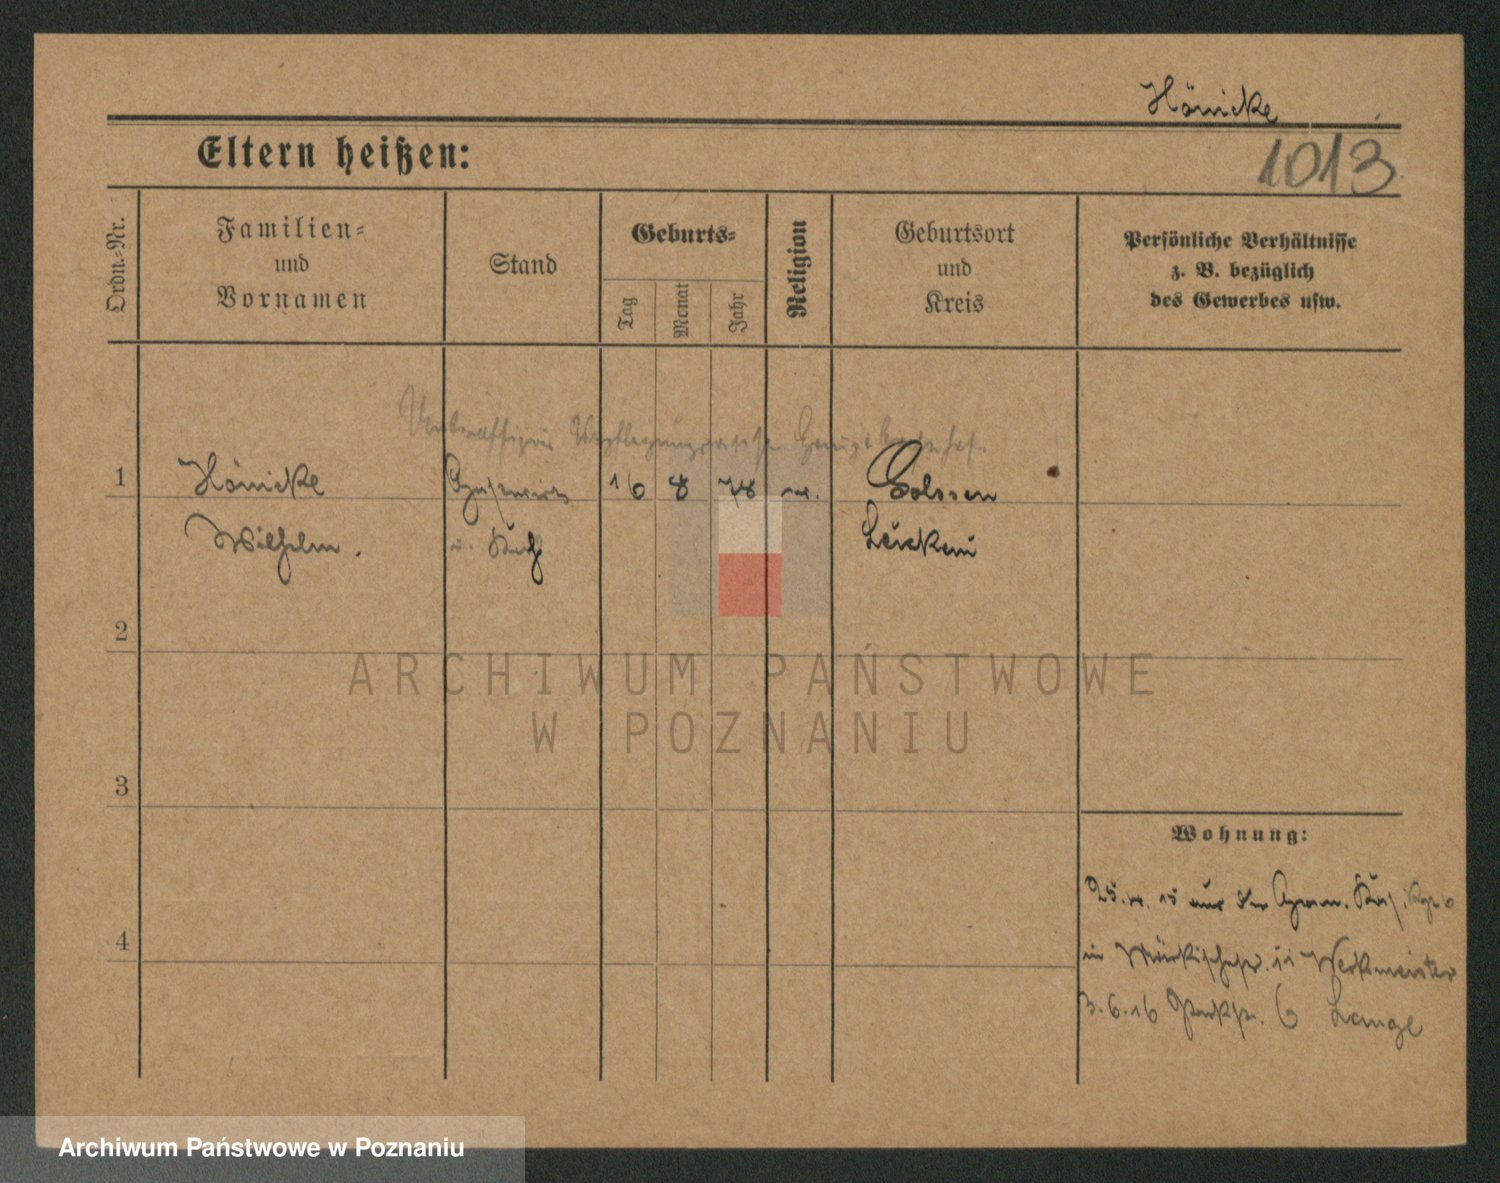 Hönicke
Eltern heißen:
1013
Ordn.-Nr.
Familien-
und
Vornamen
Stand
Geburts-
Tag
Monat
Jahr
Religion
Geburtsort
und
Kreis
Persönliche Verhältnisse
z. B. bezüglich
des Gewerbes usw.
Unteroffizier
1 Hönicke Gastwirt 16 8 78 ev. Golssen
Wilhelm. u. Luckau
2
ARCHIWUM PAŃSTWOWE
W POZNANIU
3
Wohnung:
15 aus der
4
in Werkmeister
3.6.16 Parkstr. 6 Lange
Archiwum Państwowe w Poznaniu